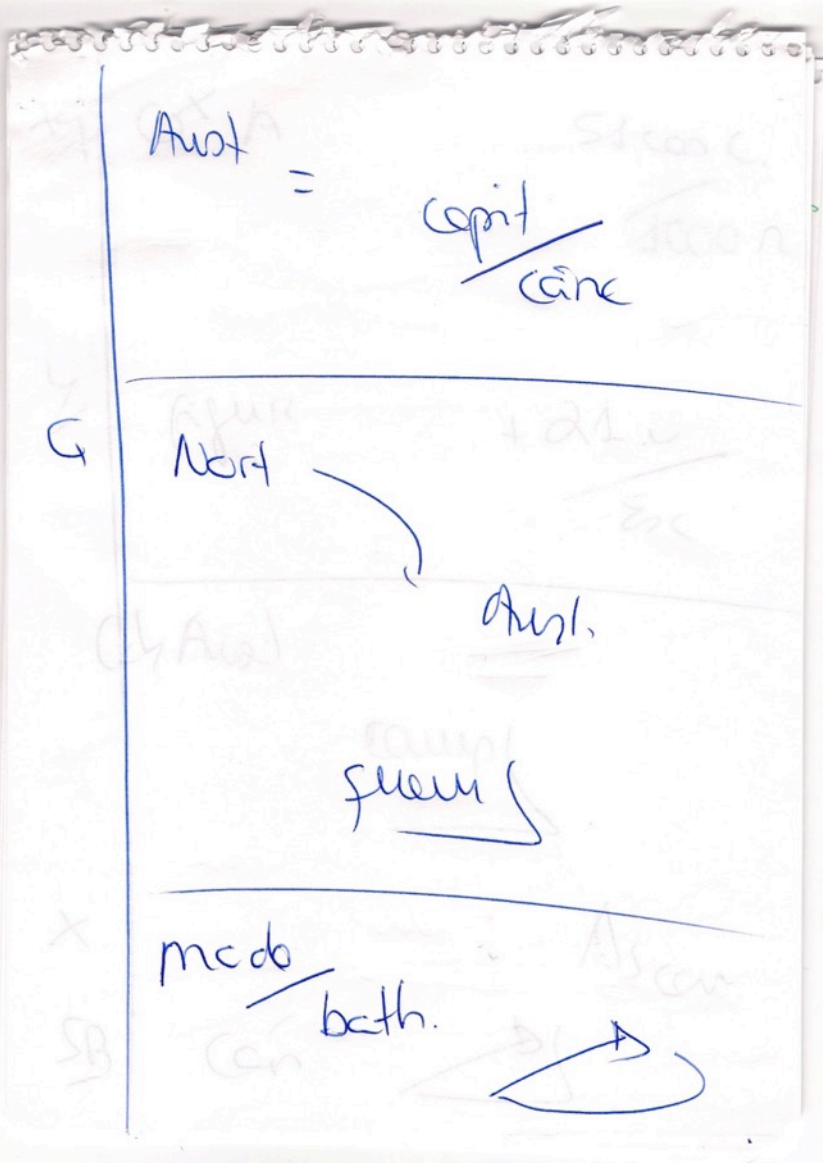 Aust
=
capit
cane
G
Nort
Aust.
mcdo
bath.